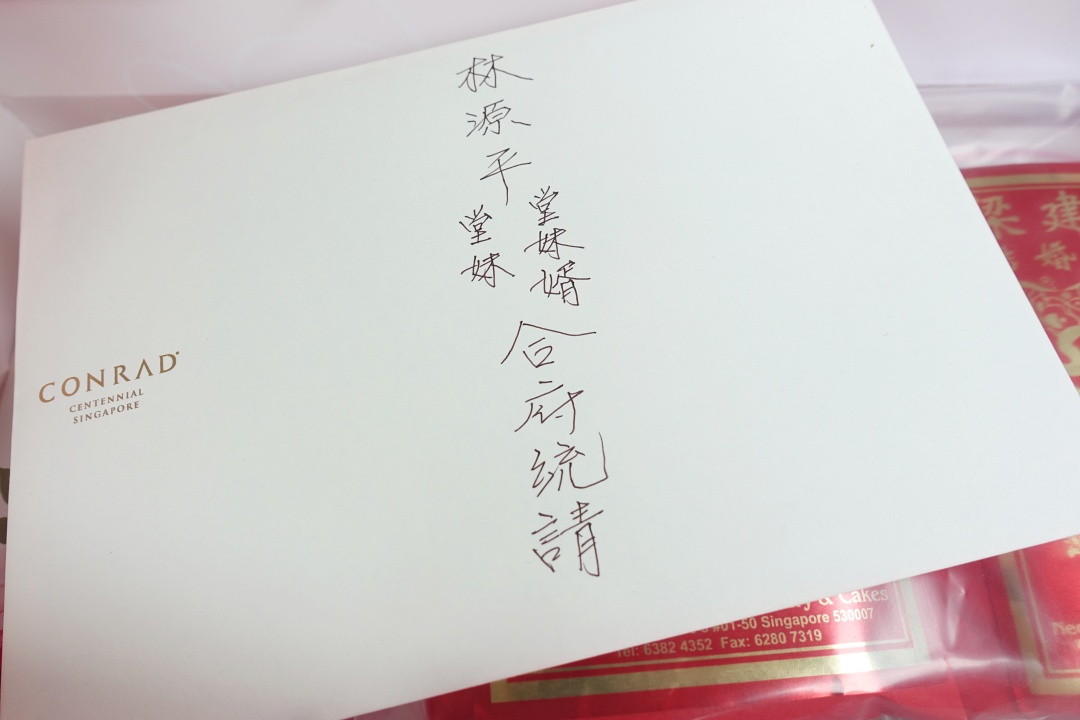 林源平
堂妹婿
堂妹
合府統請
CONRAD
CENTENNIAL
SINGAPORE
梁建
婚
& Cakes
#01-50 Singapore 530007
Tel: 6382 4352 Fax: 6280 7319